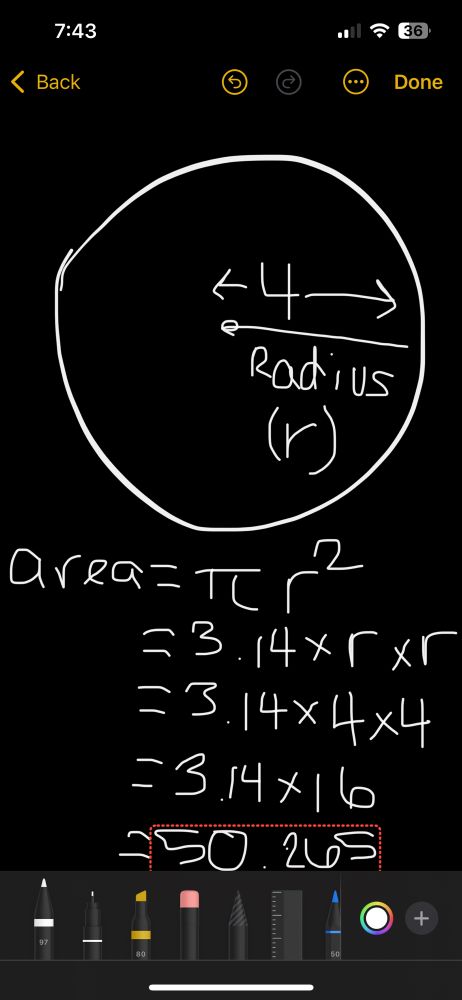 7:43
36
Back
Done
4
Radius
(r)
area = π r²
= 3.14 × r × r
= 3.14 × 4 × 4
= 3.14 × 16
= 50.265
97
80
50